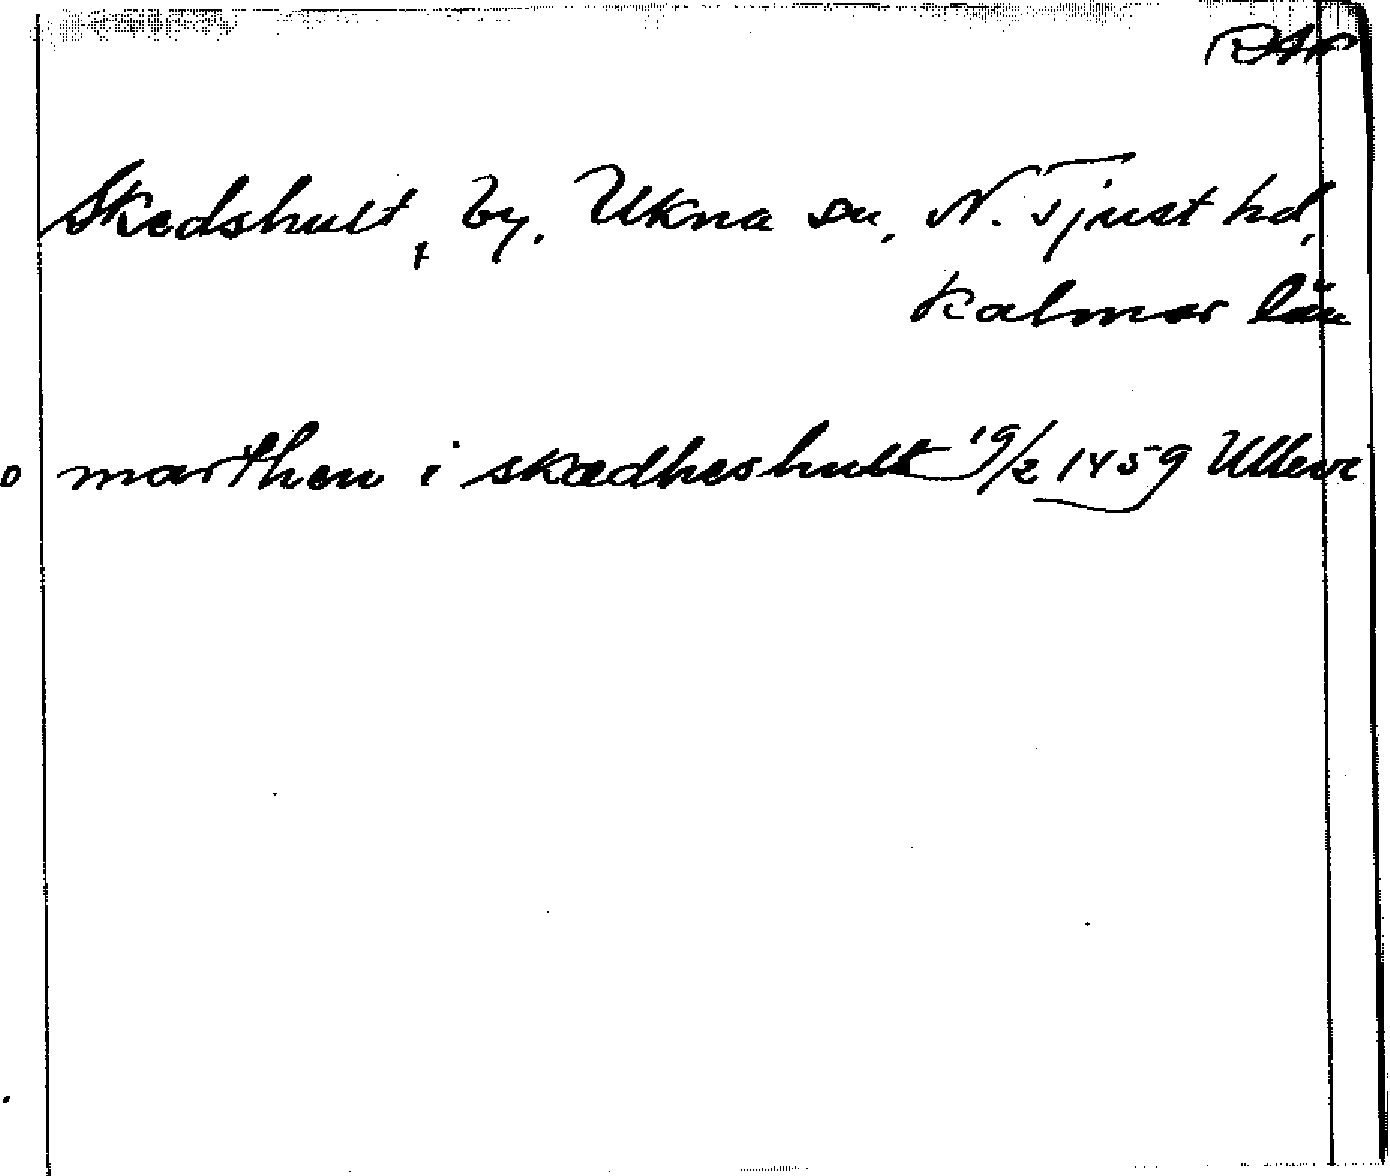 Skedshult, by, Ukna sn, N. Tjust hd,
Kalmar län
marthen i skædheshult 19/2 1459 Ulleve